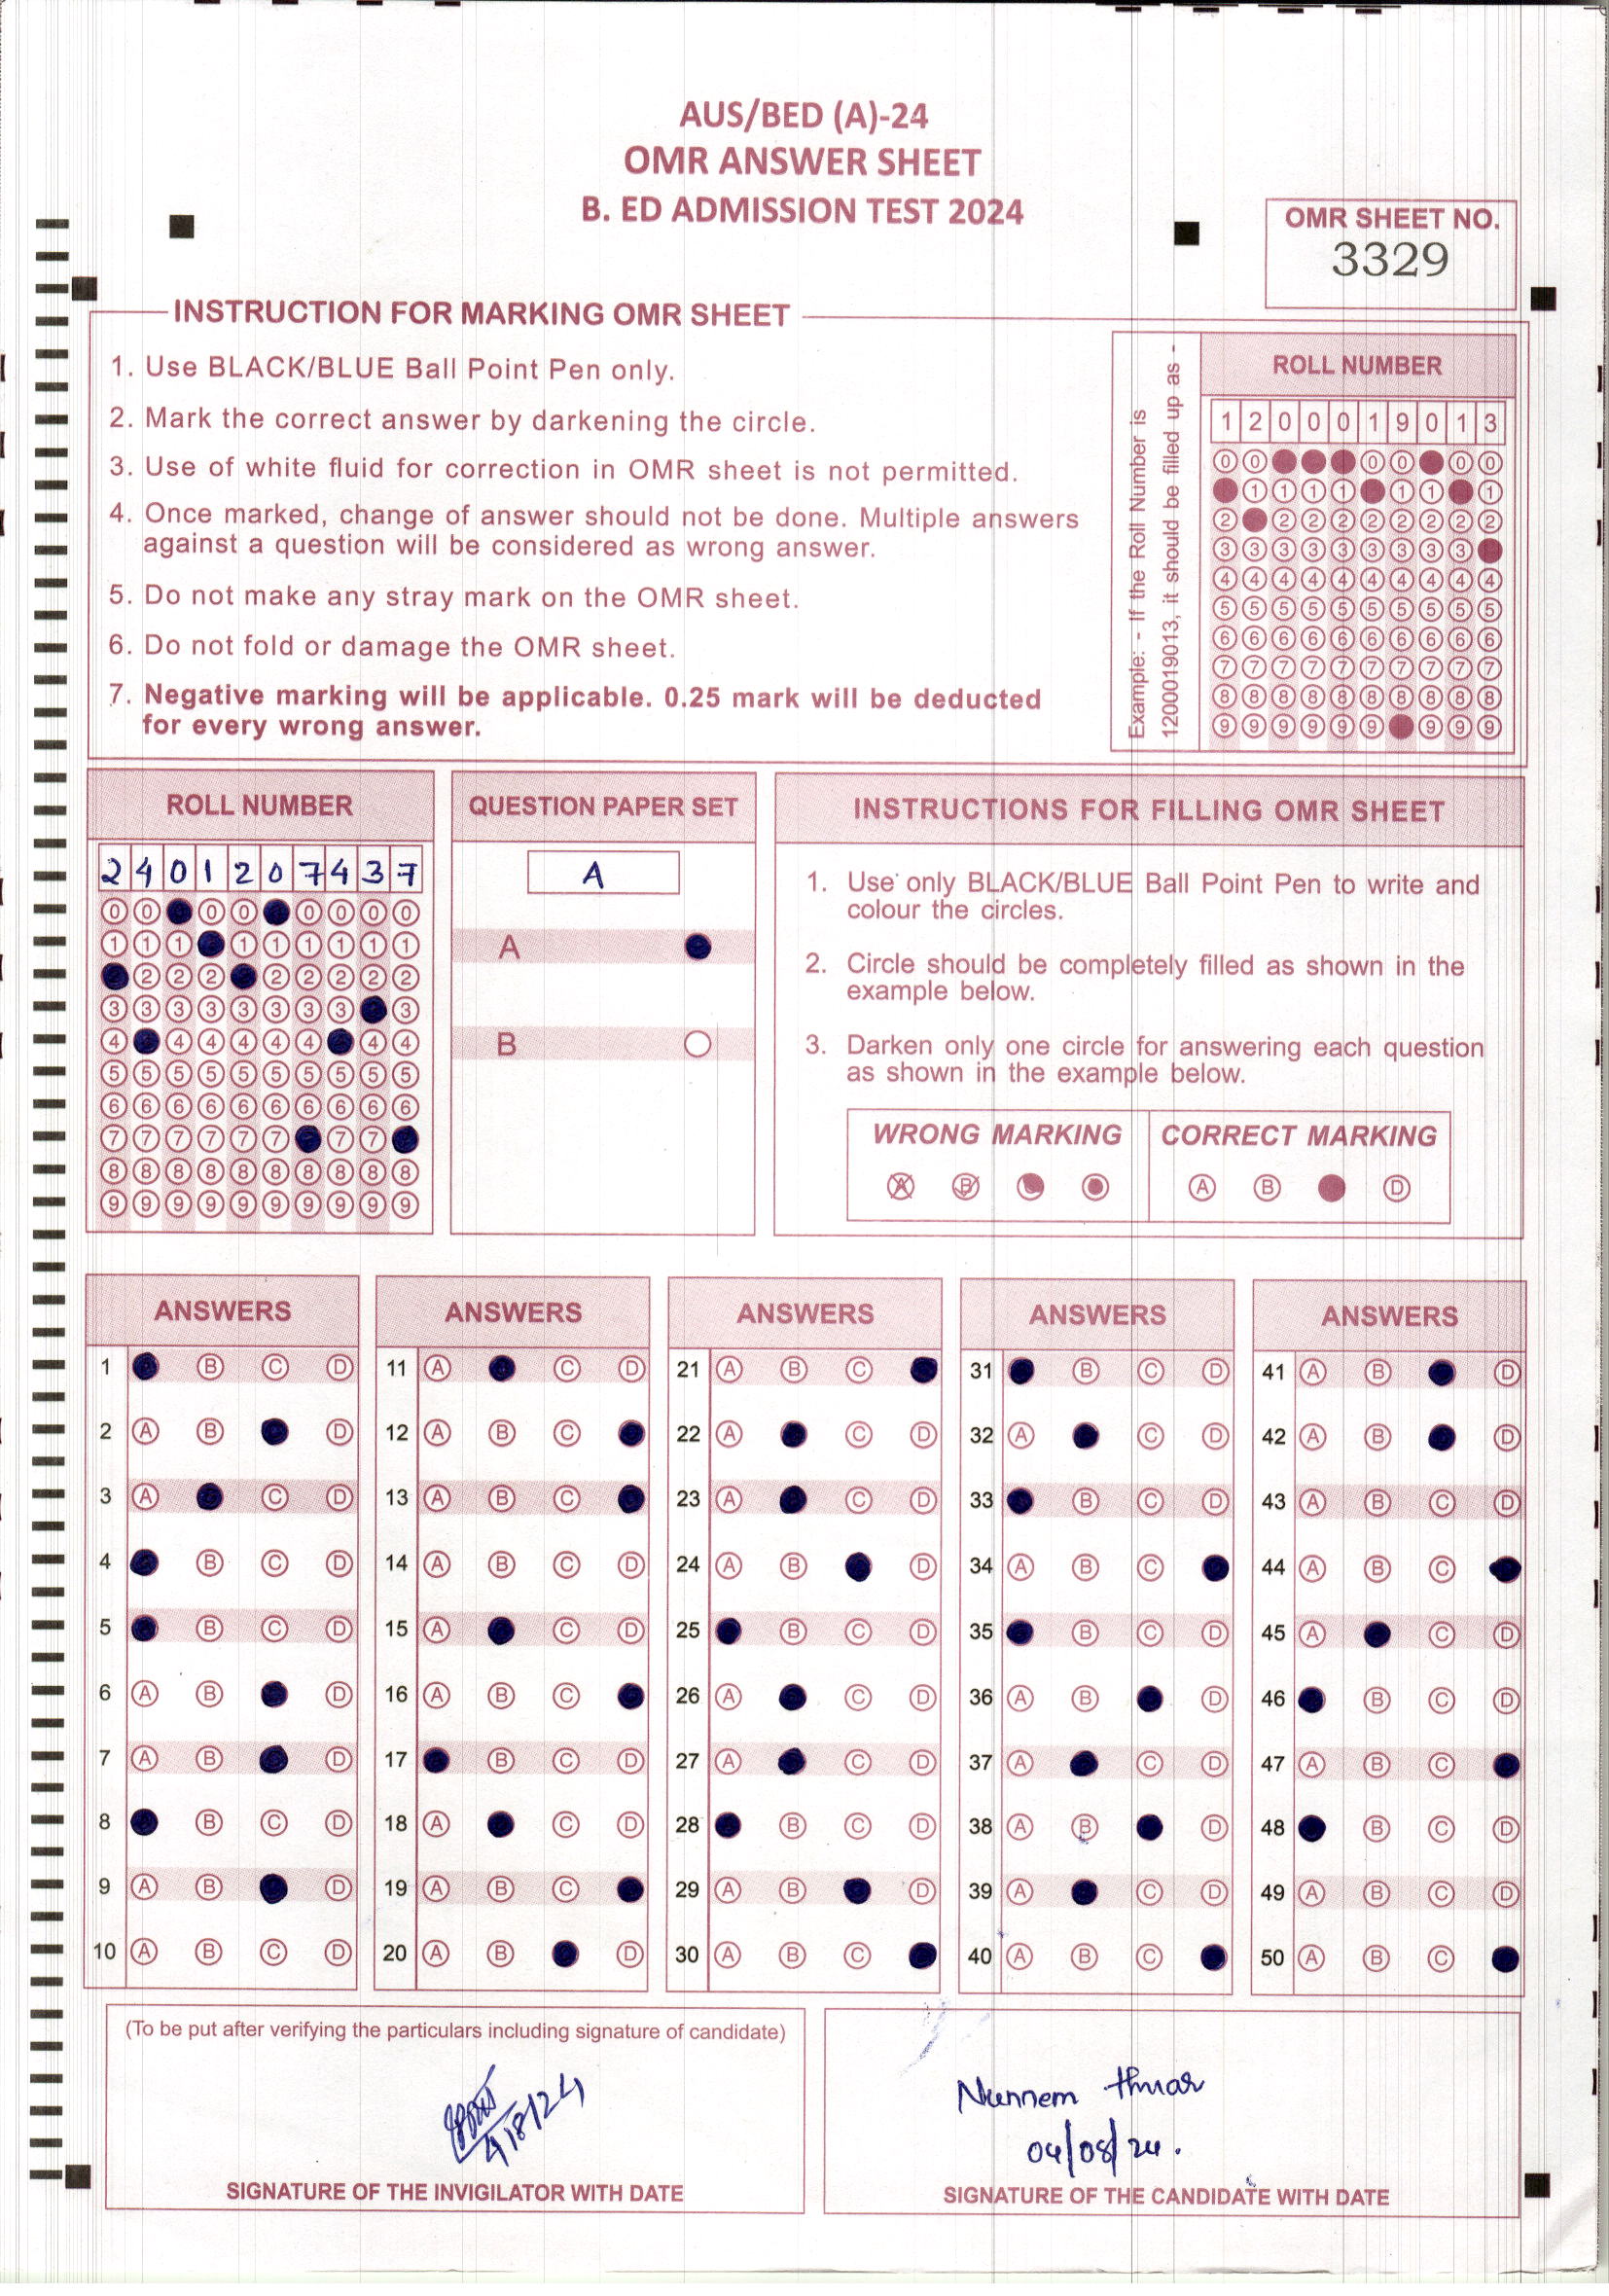 AUS/BED (A)-24
OMR ANSWER SHEET
B. ED ADMISSION TEST 2024
OMR SHEET NO.
3329
INSTRUCTION FOR MARKING OMR SHEET
1. Use BLACK/BLUE Ball Point Pen only.
2. Mark the correct answer by darkening the circle.
3. Use of white fluid for correction in OMR sheet is not permitted.
4. Once marked, change of answer should not be done. Multiple answers
against a question will be considered as wrong answer.
5. Do not make any stray mark on the OMR sheet.
6. Do not fold or damage the OMR sheet.
7. Negative marking will be applicable. 0.25 mark will be deducted
for every wrong answer.
Example: - If the Roll Number is
1200019013, it should be filled up as -
ROLL NUMBER
1 2 0 0 0 1 9 0 1 3
0 0 0 0 0 0
1 1 1 1 1 1 1
2 2 2 2 2 2 2 2 2
3 3 3 3 3 3 3 3 3
4 4 4 4 4 4 4 4 4 4
5 5 5 5 5 5 5 5 5 5
6 6 6 6 6 6 6 6 6 6
7 7 7 7 7 7 7 7 7 7
8 8 8 8 8 8 8 8 8 8
9 9 9 9 9 9 9 9 9
ROLL NUMBER
2 4 0 1 2 0 7 4 3 7
0 0 0 0 0 0 0 0
1 1 1 1 1 1 1 1 1
2 2 2 2 2 2 2 2
3 3 3 3 3 3 3 3 3
4 4 4 4 4 4 4 4
5 5 5 5 5 5 5 5 5 5
6 6 6 6 6 6 6 6 6 6
7 7 7 7 7 7 7 7
8 8 8 8 8 8 8 8 8 8
9 9 9 9 9 9 9 9 9 9
QUESTION PAPER SET
A
A
B
INSTRUCTIONS FOR FILLING OMR SHEET
1. Use only BLACK/BLUE Ball Point Pen to write and
colour the circles.
2. Circle should be completely filled as shown in the
example below.
3. Darken only one circle for answering each question
as shown in the example below.
WRONG MARKING
A B
CORRECT MARKING
A B D
ANSWERS
1 B C D
2 A B D
3 A C D
4 B C D
5 B C D
6 A B D
7 A B D
8 B C D
9 A B D
10 A B C D
ANSWERS
11 A C D
12 A B C
13 A B C
14 A B C D
15 A C D
16 A B C
17 B C D
18 A C D
19 A B C
20 A B D
ANSWERS
21 A B C
22 A C D
23 A C D
24 A B D
25 B C D
26 A C D
27 A C D
28 B C D
29 A B D
30 A B C
ANSWERS
31 B C D
32 A C D
33 B C D
34 A B C
35 B C D
36 A B D
37 A C D
38 A B D
39 A C D
40 A B C
ANSWERS
41 A B D
42 A B D
43 A B C D
44 A B C
45 A C D
46 B C D
47 A B C
48 B C D
49 A B C D
50 A B C
(To be put after verifying the particulars including signature of candidate)
4/8/24
SIGNATURE OF THE INVIGILATOR WITH DATE
Nunnem
04/08/24.
SIGNATURE OF THE CANDIDATE WITH DATE